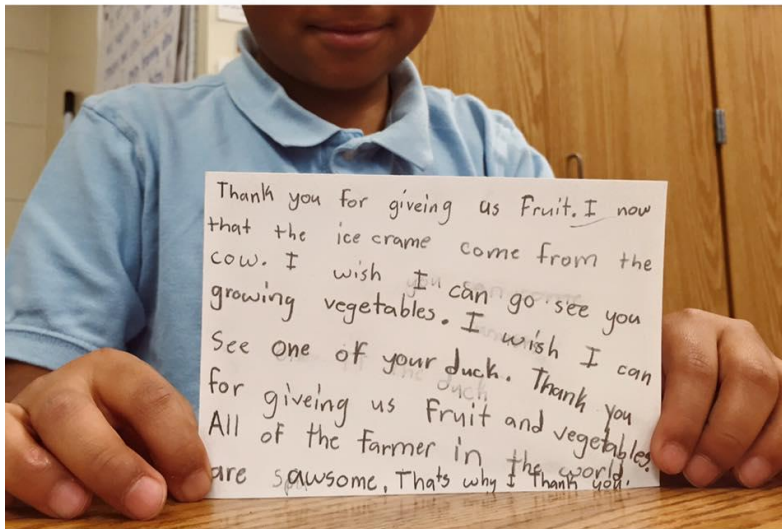 Thank you for giveing us Fruit. I now
that the ice crame come from the
cow. I wish I can go see you
growing vegetables. I wish I can
See one of your duck. Thank you
for giveing us Fruit and vegetables.
All of the farmer in the world
are awsome, Thats why I Thank you.